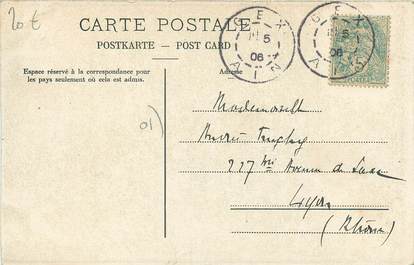 20 €
CARTE POSTALE
POSTKARTE — POST CARD
GEX
5
06
AIN
GEX
5
06
AIN
Espace réservé à la correspondance pour
les pays seulement où cela est admis.
Adresse
01)
Mademoiselle
227 bis Avenue de Saxe
Lyon
(Rhône)